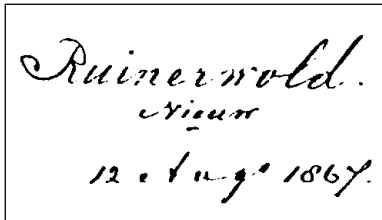 Ruinerwold.
Nieuw
12 Augs 1867.